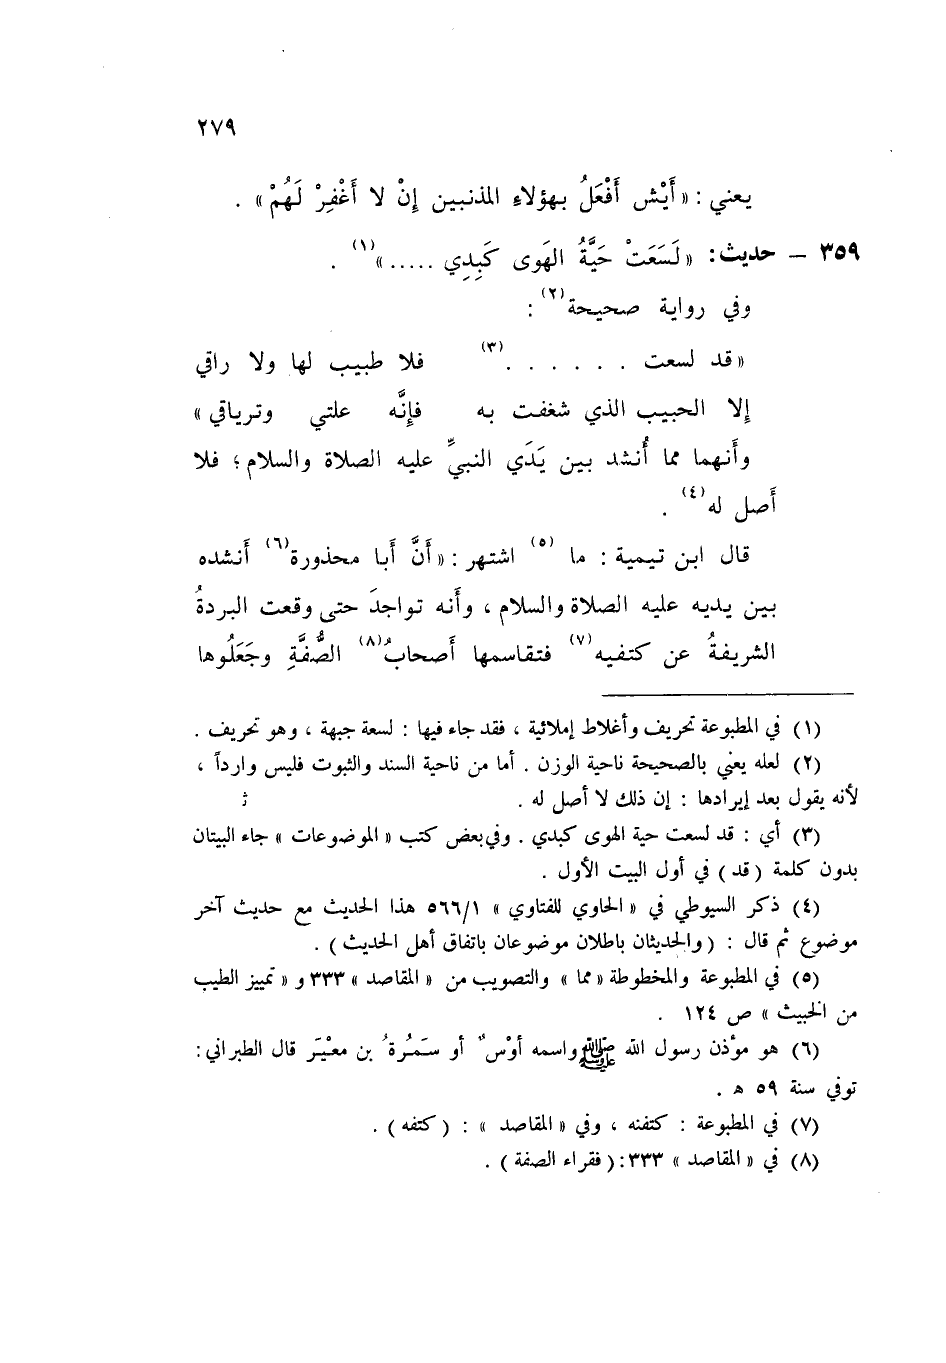 ٢٧٩
يعني : « أَيْش أَفْعَلُ بهؤلاء المذنبين إِنْ لا أَغْفِرْ لَهُمْ » .
٣٥٩ – حديث: « لَسَعَتْ حَيَّةُ الهَوى كَبِدِي ..... »(١) .
وفي رواية صحيحة(٢) :
« قد لسعت . . . . . .(٣) فلا طبيب لها ولا راقي
إلا الحبيب الذي شغفت به فإنَّه علتي وترياقي »
وأنهما مما أُنشد بين يَدَي النبيِّ عليه الصلاة والسلام ؛ فلا
أَصل له(٤) .
قال ابن تيمية : ما (٥) اشتهر : « أَنَّ أَبا محذورة(٦) أَنشده
بين يديه عليه الصلاة والسلام ، وأَنه تواجدَ حتى وقعت البردةُ
الشريفةُ عن كتفيه(٧) فتقاسمها أَصحابُ(٨) الصُّفَّةِ وجَعَلُوها
(١) في المطبوعة تحريف وأغلاط إملائية ، فقد جاء فيها : لسعة جبهة ، وهو تحريف .
(٢) لعله يعني بالصحيحة ناحية الوزن . أما من ناحية السند والثبوت فليس وارداً ،
لأنه يقول بعد إيرادها : إن ذلك لا أصل له .
(٣) أي : قد لسعت حية الهوى كبدي . وفي بعض كتب « الموضوعات » جاء البيتان
بدون كلمة ( قد ) في أول البيت الأول .
(٤) ذكر السيوطي في « الحاوي للفتاوي » ٥٦٦/١ هذا الحديث مع حديث آخر
موضوع ثم قال : ( والحديثان باطلان موضوعان باتفاق أهل الحديث ) .
(٥) في المطبوعة والمخطوطة « مما » والتصويب من « المقاصد » ٣٣٣ و « تمييز الطيب
من الخبيث » ص ١٢٤ .
(٦) هو مؤذن رسول الله ﷺ واسمه أوْسٌ أو سَمُرةُ بن معْيَر قال الطبراني :
توفي سنة ٥٩ ه .
(٧) في المطبوعة : كتفنه ، وفي « المقاصد » : ( كتفه ) .
(٨) في « المقاصد » ٣٣٣ : ( فقراء الصفة ) .